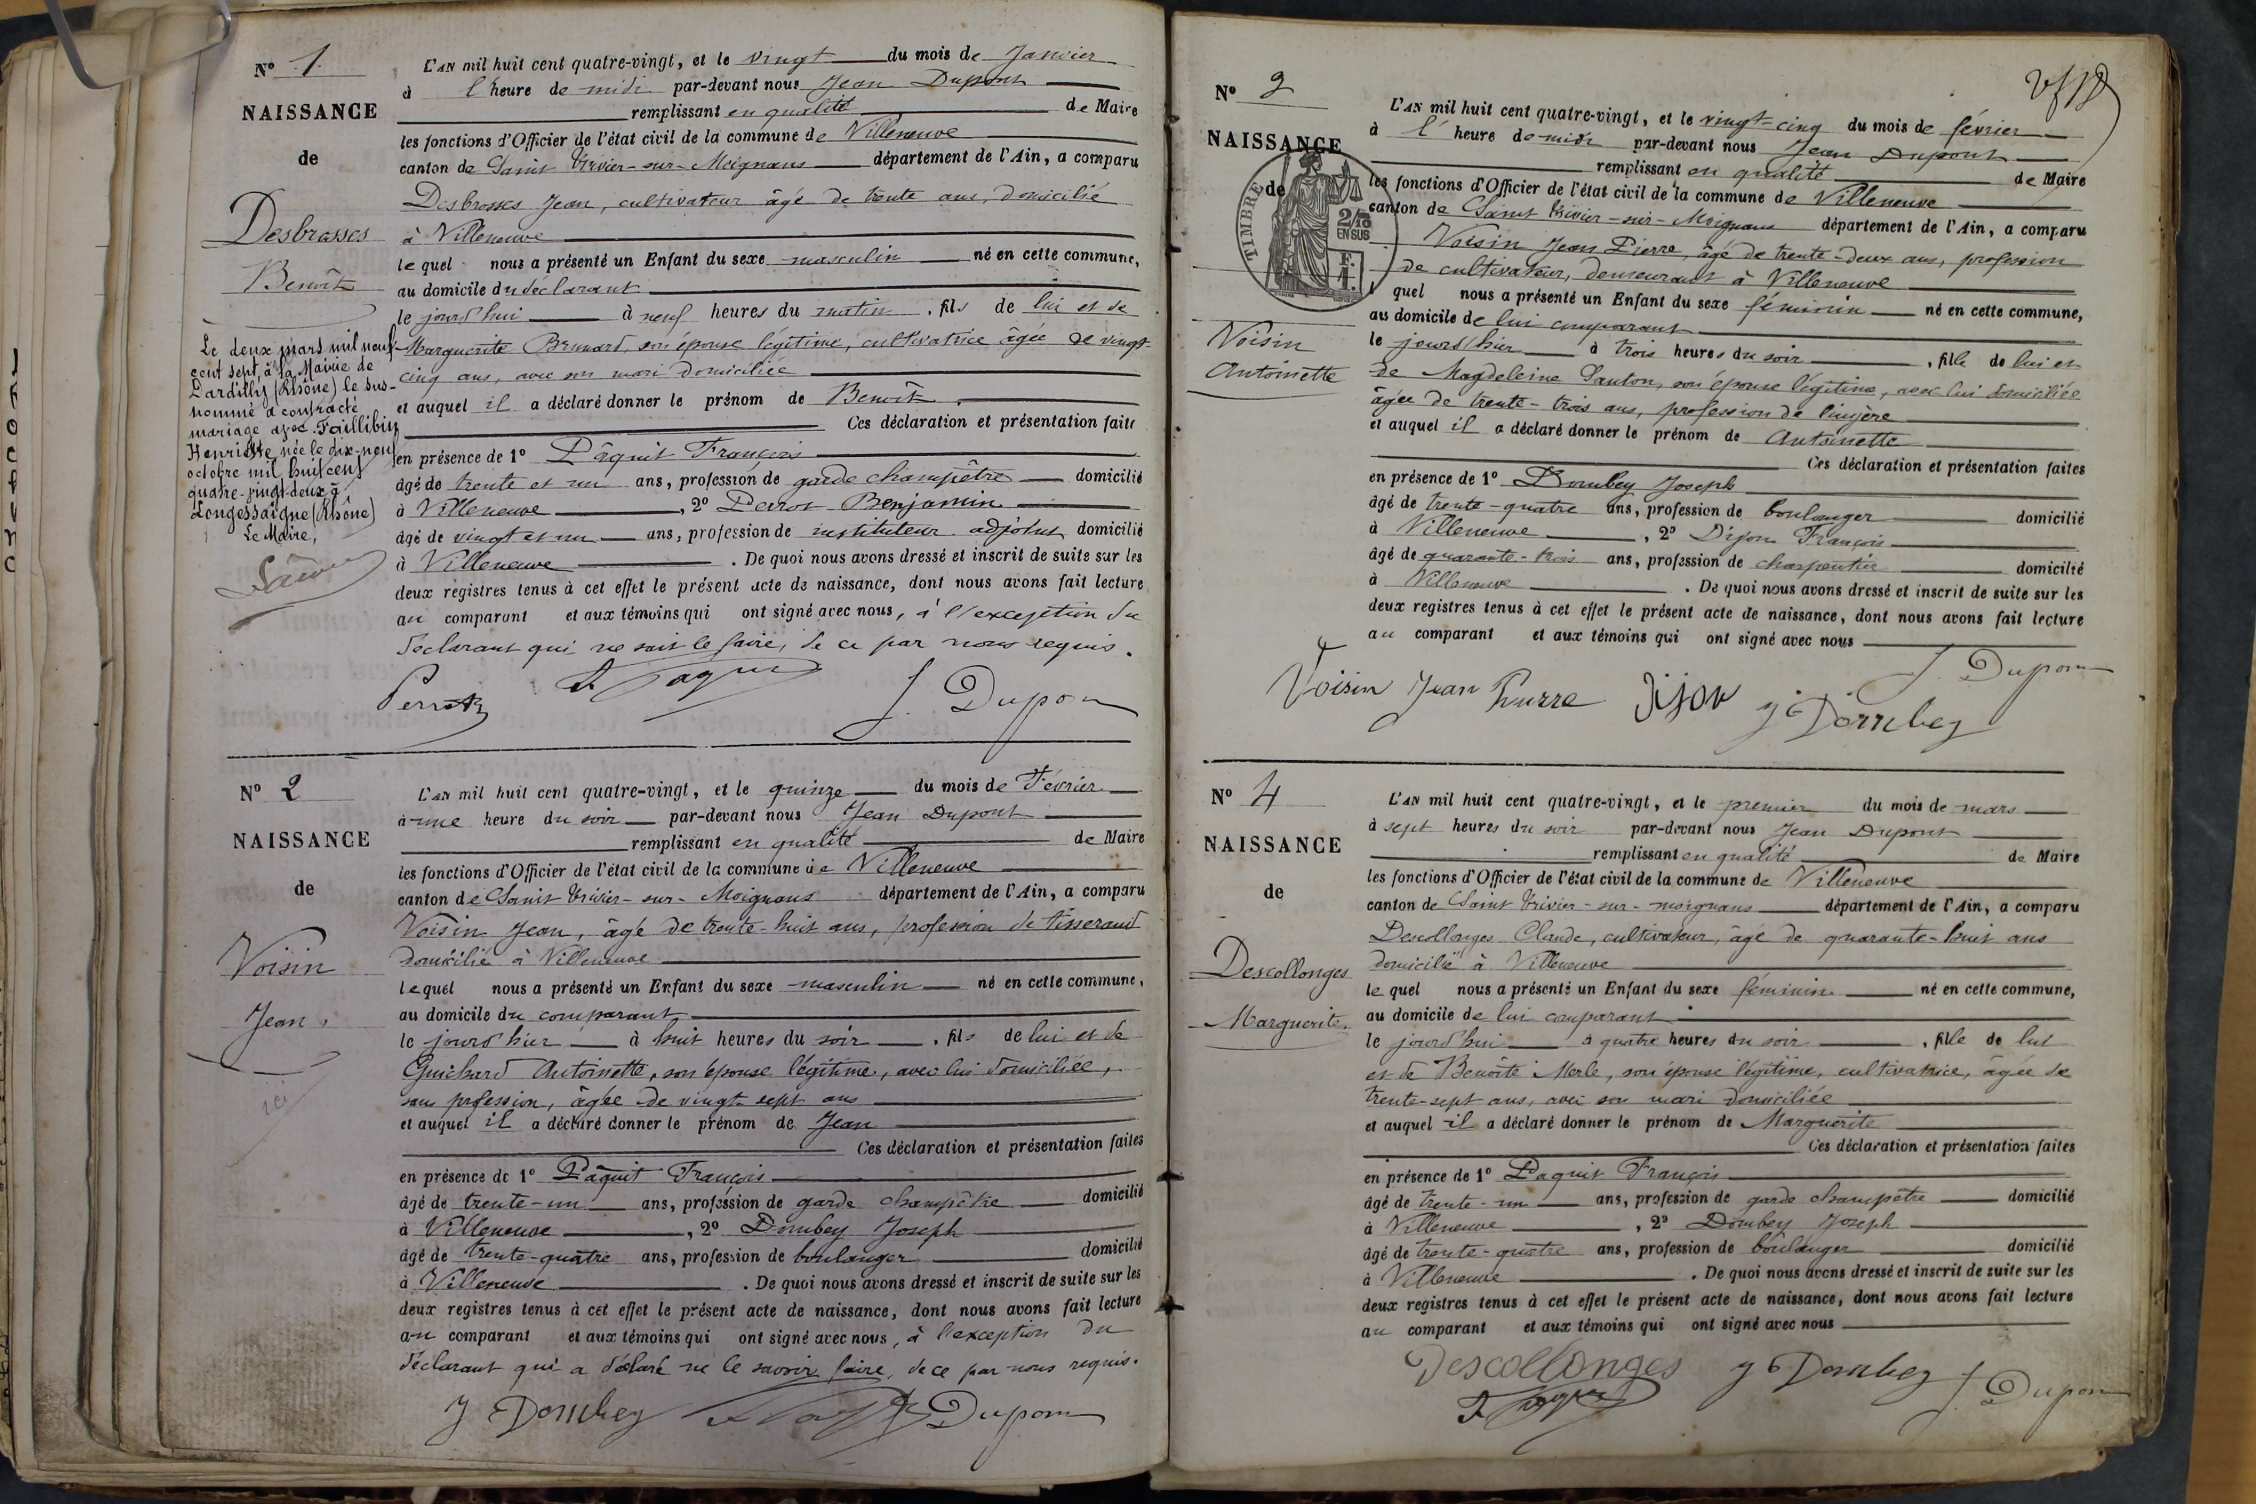 Nº 1
NAISSANCE
de
Desbrosses
Benoît
Le deux mars mil neuf
cent sept, à la Mairie de
Dardilly (Rhône) le sus-
nommé a contracté
mariage avec
Henriette née le dix-neuf
octobre mil huit cent
quatre-vingt-deux à
Longessaigne (Rhône)
Le Maire,
L'AN mil huit cent quatre-vingt, et le vingt du mois de Janvier
à l'heure de midi par-devant nous Jean Dupont
remplissant en qualité de Maire
les fonctions d'Officier de l'état civil de la commune de Villeneuve
canton de Saint Trivier-sur-Moignans département de l'Ain, a comparu
Desbrosses Jean, cultivateur âgé de trente ans, domicilié
à Villeneuve
lequel nous a présenté un Enfant du sexe masculin né en cette commune,
au domicile du déclarant
le jourd'hui à neuf heures du matin, fils de lui et de
Marguerite Brunard, son épouse légitime, cultivatrice âgée de vingt
cinq ans, avec son mari domiciliée
et auquel il a déclaré donner le prénom de Benoît.
Ces déclaration et présentation faites
en présence de 1º Pâquit François
âgé de trente et un ans, profession de garde champêtre domicilié
à Villeneuve, 2º Perrot Benjamin
âgé de vingt et un ans, profession de instituteur adjoint domicilié
à Villeneuve. De quoi nous avons dressé et inscrit de suite sur les
deux registres tenus à cet effet le présent acte de naissance, dont nous avons fait lecture
au comparant et aux témoins qui ont signé avec nous, à l'exception du
déclarant qui ne sait le faire, de ce par nous requis.
Perrot F Paquit J. Dupont
Nº 2
NAISSANCE
de
Voisin
Jean
L'AN mil huit cent quatre-vingt, et le quinze du mois de Février
à une heure du soir par-devant nous Jean Dupont
remplissant en qualité de Maire
les fonctions d'Officier de l'état civil de la commune de Villeneuve
canton de Saint Trivier-sur-Moignans département de l'Ain, a comparu
Voisin Jean, âgé de trente-huit ans, profession de tisserand
domicilié à Villeneuve
lequel nous a présenté un Enfant du sexe masculin né en cette commune,
au domicile du comparant
le jourd'hier à huit heures du soir, fils de lui et de
Guichard Antoinette, son épouse légitime, avec lui domiciliée,
sans profession, âgée de vingt sept ans
et auquel il a déclaré donner le prénom de Jean
Ces déclaration et présentation faites
en présence de 1º Pâquit François
âgé de trente-un ans, profession de garde champêtre domicilié
à Villeneuve, 2º Dombey Joseph
âgé de trente-quatre ans, profession de boulanger domicilié
à Villeneuve. De quoi nous avons dressé et inscrit de suite sur les
deux registres tenus à cet effet le présent acte de naissance, dont nous avons fait lecture
au comparant et aux témoins qui ont signé avec nous, à l'exception du
déclarant qui a déclaré ne le savoir faire, de ce par nous requis.
J Dombey F Paquit J Dupont
Nº 3
NAISSANCE
de
TIMBRE
2/10
EN SUS
F.
1.
Voisin
Antoinette
L'AN mil huit cent quatre-vingt, et le vingt-cinq du mois de février
à l'heure de midi par-devant nous Jean Dupont
remplissant en qualité de Maire
les fonctions d'Officier de l'état civil de la commune de Villeneuve
canton de Saint Trivier-sur-Moignans département de l'Ain, a comparu
Voisin Jean Pierre, âgé de trente-deux ans, profession
de cultivateur, demeurant à Villeneuve
quel nous a présenté un Enfant du sexe féminin né en cette commune,
au domicile de lui comparant
le jourd'hier à trois heures du soir, fille de lui et
de Magdeleine Santon, son épouse légitime, avec lui domiciliée
âgée de trente-trois ans, profession de lingère
et auquel il a déclaré donner le prénom de Antoinette
Ces déclaration et présentation faites
en présence de 1º Dombey Joseph
âgé de trente-quatre ans, profession de boulanger domicilié
à Villeneuve, 2º Dijon François
âgé de quarante-trois ans, profession de charpentier domicilié
à Villeneuve. De quoi nous avons dressé et inscrit de suite sur les
deux registres tenus à cet effet le présent acte de naissance, dont nous avons fait lecture
au comparant et aux témoins qui ont signé avec nous
J. Dupont
Voisin Jean Pierre Dijon J Dombey
Nº 4
NAISSANCE
de
Descollonges
Marguerite
L'AN mil huit cent quatre-vingt, et le premier du mois de mars
à sept heures du soir par-devant nous Jean Dupont
remplissant en qualité de Maire
les fonctions d'Officier de l'état civil de la commune de Villeneuve
canton de Saint Trivier-sur-Moignans département de l'Ain, a comparu
Descollonges Claude, cultivateur, âgé de quarante-huit ans
domicilié à Villeneuve
lequel nous a présenté un Enfant du sexe féminin né en cette commune,
au domicile de lui comparant
le jourd'hui à quatre heures du soir, fille de lui
et de Benoîte Merle, son épouse légitime, cultivatrice, âgée de
trente-sept ans, avec son mari domiciliée
et auquel il a déclaré donner le prénom de Marguerite
Ces déclaration et présentation faites
en présence de 1º Paquit François
âgé de trente-un ans, profession de garde champêtre domicilié
à Villeneuve, 2º Dombey Joseph
âgé de trente-quatre ans, profession de boulanger domicilié
à Villeneuve. De quoi nous avons dressé et inscrit de suite sur les
deux registres tenus à cet effet le présent acte de naissance, dont nous avons fait lecture
au comparant et aux témoins qui ont signé avec nous
Descollonges J Dombey J. Dupont
F Paquit